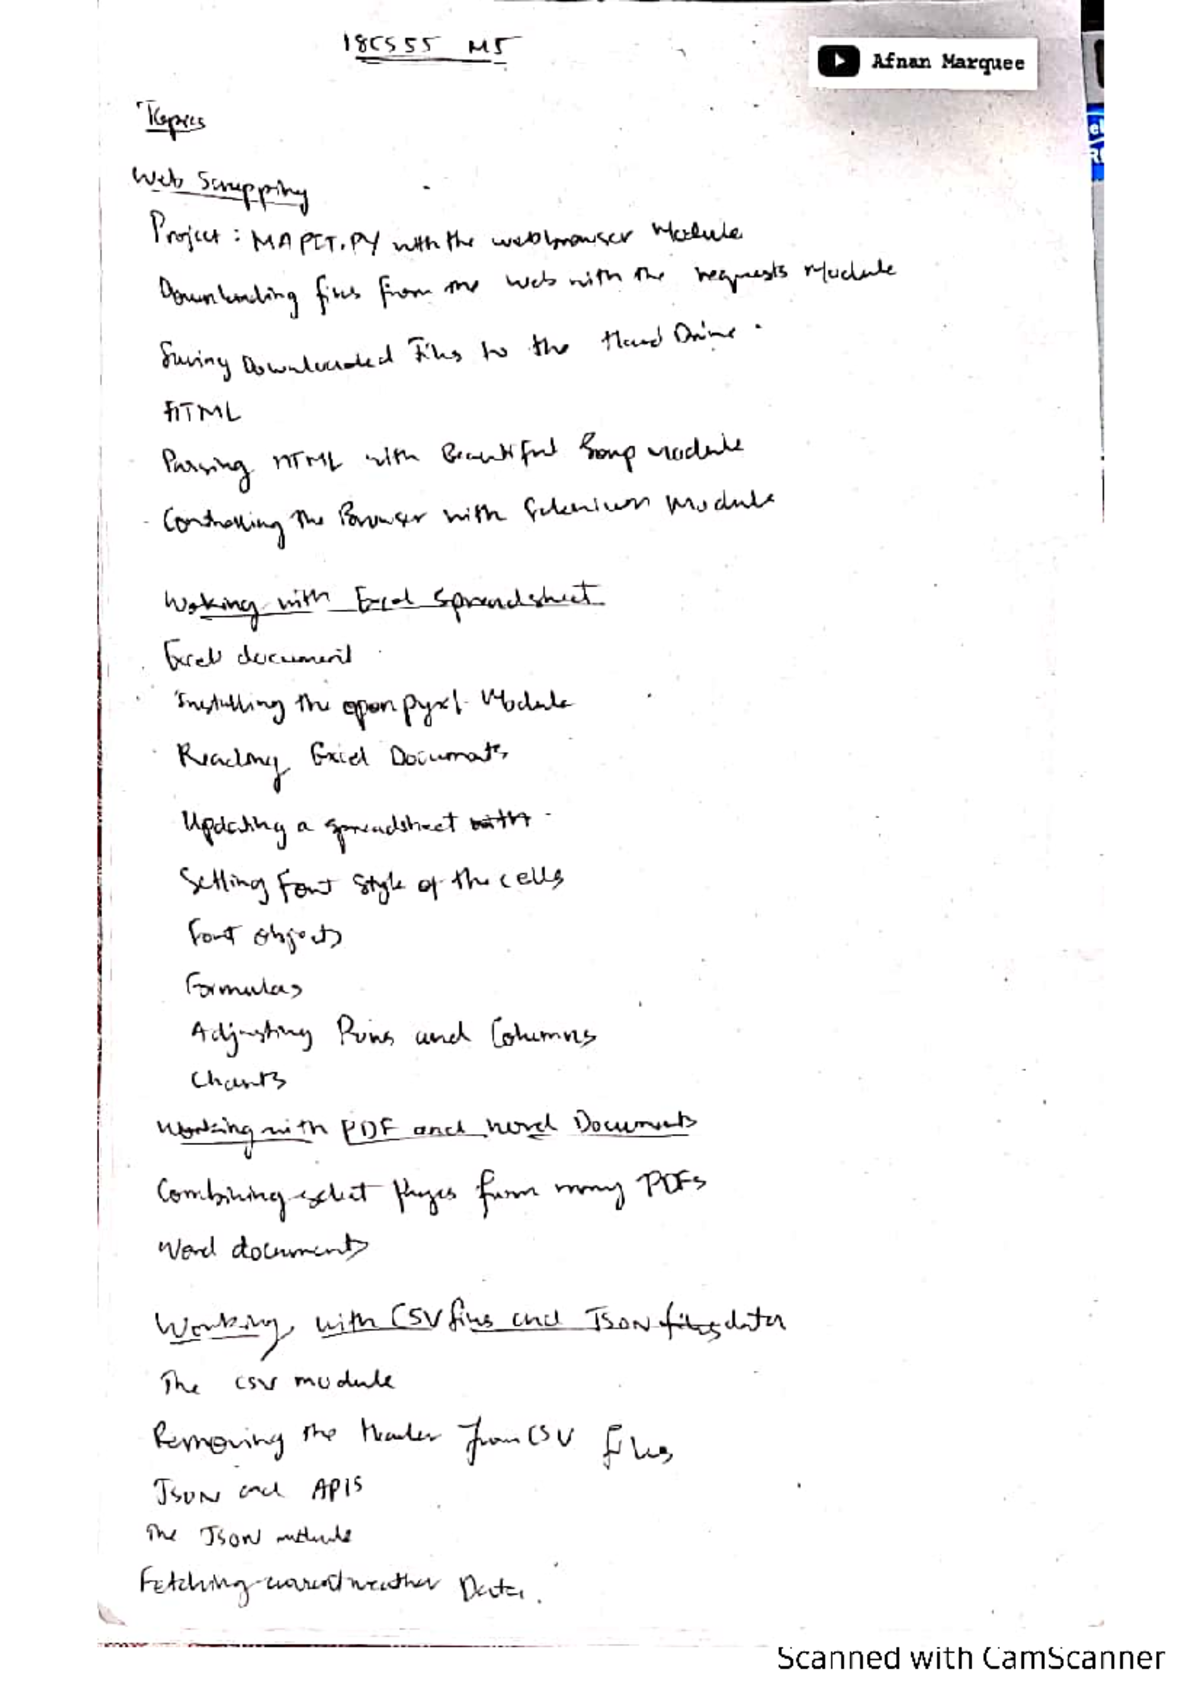 18CS55 M5
Afnan Marquee
Topics
Web Scrapping
Project : MAPIT.PY with the webbrowser Module
Downloading files from the Web with the requests Module
Saving Downloaded Files to the Hard Drive.
HTML
Parsing HTML with Beautiful Soup Module
Controlling the Browser with Selenium Module
Working with Excel Spreadsheet
Excel document
Installing the openpyxl Module
Reading Excel Documents
Updating a spreadsheet with
Setting Font Style of the cells
Font Objects
Formulas
Adjusting Rows and Columns
Charts
Working with PDF and Word Documents
Combining select Pages from many PDFs
Word documents
Working with CSV files and JSON files data
The csv module
Removing the Header from CSV Files
JSON and APIS
The JSON module
Fetching current weather Data.
Scanned with CamScanner